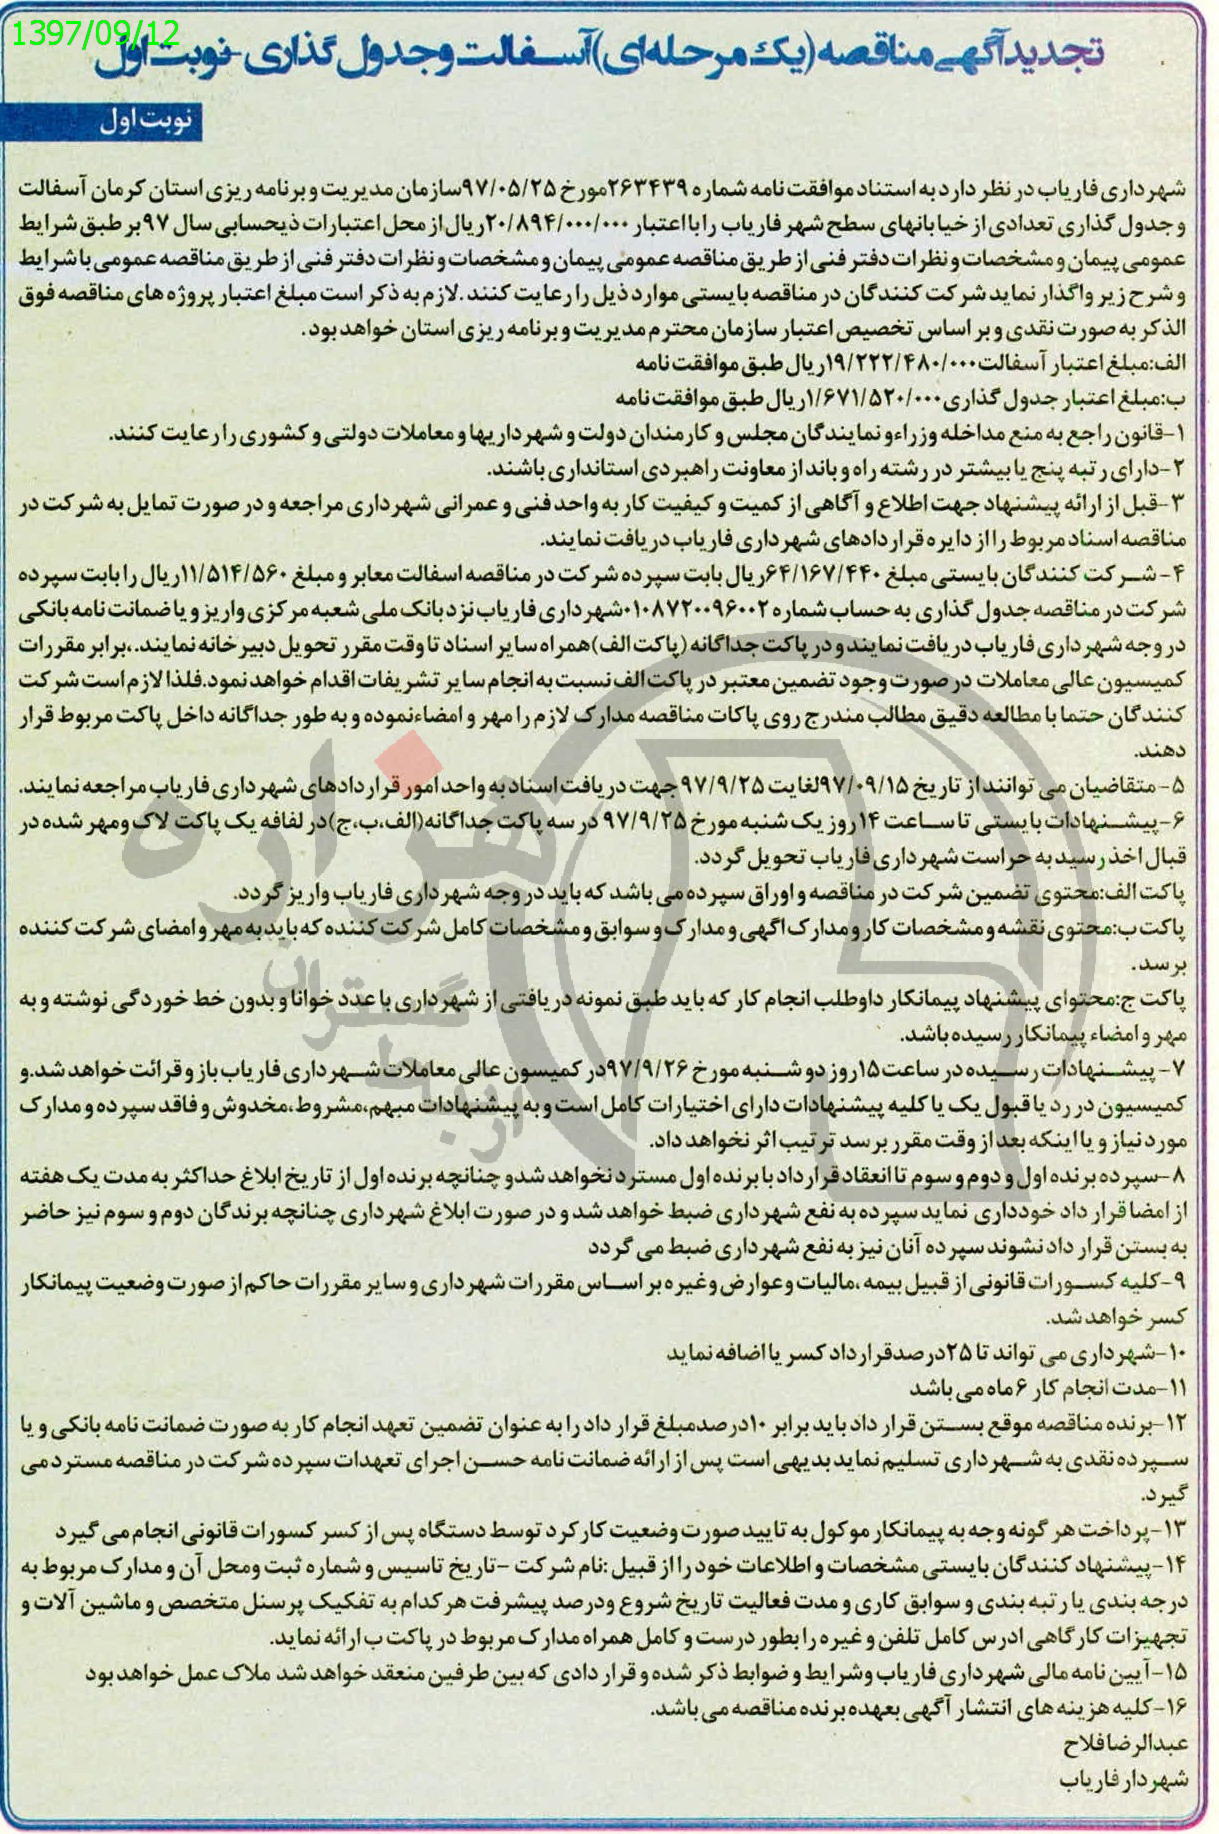 1397/09/12
تجدیدآگهی مناقصه(یک مرحله‌ای)آسفالت وجدول گذاری-نوبت اول
نوبت اول
شهرداری فاریاب در نظر دارد به استناد موافقت نامه شماره ۲۶۳۴۳۹مورخ ۹۷/۰۵/۲۵سازمان مدیریت و برنامه ریزی استان کرمان آسفالت
و جدول گذاری تعدادی از خیابانهای سطح شهر فاریاب را با اعتبار ۲۰/۸۹۴/۰۰۰/۰۰۰ریال از محل اعتبارات ذیحسابی سال ۹۷بر طبق شرایط
عمومی پیمان و مشخصات و نظرات دفتر فنی از طریق مناقصه عمومی پیمان و مشخصات و نظرات دفتر فنی از طریق مناقصه عمومی با شرایط
و شرح زیر واگذار نماید شرکت کنندگان در مناقصه بایستی موارد ذیل را رعایت کنند .لازم به ذکر است مبلغ اعتبار پروژه های مناقصه فوق
الذکر به صورت نقدی و بر اساس تخصیص اعتبار سازمان محترم مدیریت و برنامه ریزی استان خواهد بود.
الف:مبلغ اعتبار آسفالت۱۹/۲۲۲/۴۸۰/۰۰۰ریال طبق موافقت نامه
ب:مبلغ اعتبار جدول گذاری۱/۶۷۱/۵۲۰/۰۰۰ریال طبق موافقت نامه
۱-قانون راجع به منع مداخله وزراءو نمایندگان مجلس و کارمندان دولت و شهرداریها و معاملات دولتی و کشوری را رعایت کنند.
۲-دارای رتبه پنج یا بیشتر در رشته راه و باند از معاونت راهبردی استانداری باشند.
۳-قبل از ارائه پیشنهاد جهت اطلاع و آگاهی از کمیت و کیفیت کار به واحد فنی و عمرانی شهرداری مراجعه و در صورت تمایل به شرکت در
مناقصه اسناد مربوط را از دایره قراردادهای شهرداری فاریاب دریافت نمایند.
۴-شرکت کنندگان بایستی مبلغ ۶۴/۱۶۷/۴۴۰ریال بابت سپرده شرکت در مناقصه اسفالت معابر و مبلغ ۱۱/۵۱۴/۵۶۰ریال را بابت سپرده
شرکت در مناقصه جدول گذاری به حساب شماره ۰۱۰۸۷۲۰۰۹۶۰۰۲شهرداری فاریاب نزد بانک ملی شعبه مرکزی واریز و یا ضمانت نامه بانکی
در وجه شهرداری فاریاب دریافت نمایند و در پاکت جداگانه (پاکت الف)همراه سایر اسناد تا وقت مقرر تحویل دبیرخانه نمایند.،برابر مقررات
کمیسیون عالی معاملات در صورت وجود تضمین معتبر در پاکت الف نسبت به انجام سایر تشریفات اقدام خواهد نمود.فلذا لازم است شرکت
کنندگان حتما با مطالعه دقیق مطالب مندرج روی پاکات مناقصه مدارک لازم را مهر و امضاءنموده و به طور جداگانه داخل پاکت مربوط قرار
دهند.
۵-متقاضیان می توانند از تاریخ ۹۷/۰۹/۱۵لغایت ۹۷/۹/۲۵ جهت دریافت اسناد به واحد امور قراردادهای شهرداری فاریاب مراجعه نمایند.
۶-پیشنهادات بایستی تا ساعت ۱۴روز یک شنبه مورخ ۹۷/۹/۲۵ در سه پاکت جداگانه(الف،ب،ج)در لفافه یک پاکت لاک ومهر شده در
قبال اخذ رسید به حراست شهرداری فاریاب تحویل گردد.
پاکت الف:محتوی تضمین شرکت در مناقصه و اوراق سپرده می باشد که باید در وجه شهرداری فاریاب واریز گردد.
پاکت ب:محتوی نقشه و مشخصات کار و مدارک اگهی و مدارک و سوابق و مشخصات کامل شرکت کننده که باید به مهر و امضای شرکت کننده
برسد.
پاکت ج:محتوای پیشنهاد پیمانکار داوطلب انجام کار که باید طبق نمونه دریافتی از شهرداری با عدد خوانا و بدون خط خوردگی نوشته و به
مهر و امضاء پیمانکار رسیده باشد.
۷-پیشنهادات رسیده در ساعت۱۵روز دو شنبه مورخ ۹۷/۹/۲۶در کمیسون عالی معاملات شهرداری فاریاب باز و قرائت خواهد شد.و
کمیسیون در رد یا قبول یک یا کلیه پیشنهادات دارای اختیارات کامل است و به پیشنهادات مبهم،مشروط،مخدوش و فاقد سپرده و مدارک
مورد نیاز و یا اینکه بعد از وقت مقرر برسد ترتیب اثر نخواهد داد.
۸-سپرده برنده اول و دوم و سوم تا انعقاد قرارداد با برنده اول مسترد نخواهد شدو چنانچه برنده اول از تاریخ ابلاغ حداکثر به مدت یک هفته
از امضا قرار داد خودداری نماید سپرده به نفع شهرداری ضبط خواهد شد و در صورت ابلاغ شهرداری چنانچه برندگان دوم و سوم نیز حاضر
به بستن قرار داد نشوند سپرده آنان نیز به نفع شهرداری ضبط می گردد
۹-کلیه کسورات قانونی از قبیل بیمه ،مالیات و عوارض وغیره بر اساس مقررات شهرداری و سایر مقررات حاکم از صورت وضعیت پیمانکار
کسر خواهد شد.
۱۰-شهرداری می تواند تا ۲۵درصدقرارداد کسر یا اضافه نماید
۱۱-مدت انجام کار ۶ماه می باشد
۱۲-برنده مناقصه موقع بستن قرار داد باید برابر ۱۰درصدمبلغ قرار داد را به عنوان تضمین تعهد انجام کار به صورت ضمانت نامه بانکی و یا
سپرده نقدی به شهرداری تسلیم نماید بدیهی است پس از ارائه ضمانت نامه حسن اجرای تعهدات سپرده شرکت در مناقصه مسترد می
گیرد.
۱۳-پرداخت هر گونه وجه به پیمانکار موکول به تایید صورت وضعیت کارکرد توسط دستگاه پس از کسر کسورات قانونی انجام می گیرد
۱۴-پیشنهاد کنندگان بایستی مشخصات و اطلاعات خود را از قبیل :نام شرکت -تاریخ تاسیس و شماره ثبت ومحل آن و مدارک مربوط به
درجه بندی یا رتبه بندی و سوابق کاری و مدت فعالیت تاریخ شروع ودرصد پیشرفت هر کدام به تفکیک پرسنل متخصص و ماشین آلات و
تجهیزات کارگاهی ادرس کامل تلفن و غیره را بطور درست و کامل همراه مدارک مربوط در پاکت ب ارائه نماید.
۱۵-آیین نامه مالی شهرداری فاریاب وشرایط و ضوابط ذکر شده و قرار دادی که بین طرفین منعقد خواهد شد ملاک عمل خواهد بود
۱۶-کلیه هزینه های انتشار آگهی بعهده برنده مناقصه می باشد.
عبدالرضا فلاح
شهردار فاریاب